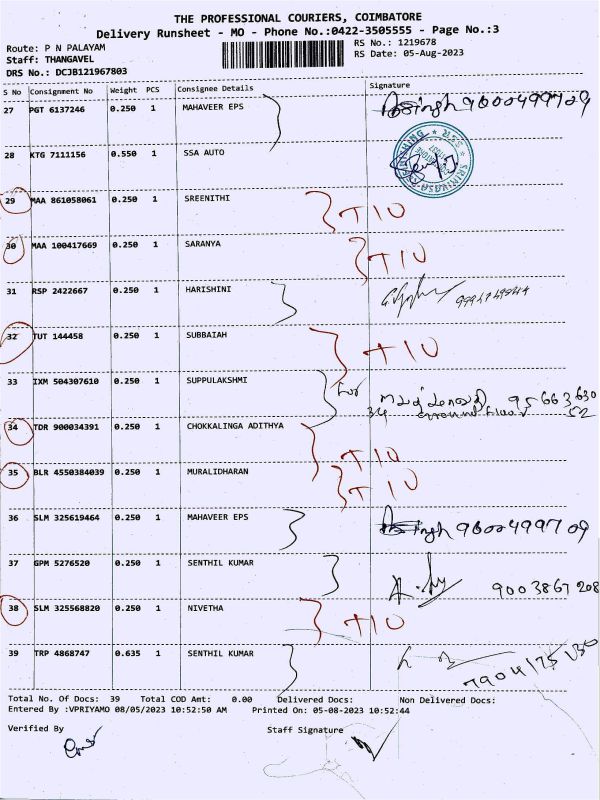 THE PROFESSIONAL COURIERS, COIMBATORE
Delivery Runsheet - MO - Phone No.:0422-3505555 - Page No.:3
Route: P N PALAYAM
RS No.: 1219678
Staff: THANGAVEL
RS Date: 05-Aug-2023
DRS No.: DCJB121967803
S No Consignment No Weight PCS Consignee Details Signature
27 PGT 6137246 0.250 1 MAHAVEER EPS singh 9600499709
28 KTG 7111156 0.550 1 SSA AUTO
29 MAA 861058061 0.250 1 SREENITHI T10
30 MAA 100417669 0.250 1 SARANYA T10
31 RSP 2422667 0.250 1 HARISHINI
32 TUT 144458 0.250 1 SUBBAIAH T10
33 IXM 504307610 0.250 1 SUPPULAKSHMI for 95663630
34 ground floor 52
34 TDR 900034391 0.250 1 CHOKKALINGA ADITHYA T10
35 BLR 4550384039 0.250 1 MURALIDHARAN T10
36 SLM 325619464 0.250 1 MAHAVEER EPS singh 9600499709
37 GPM 5276520 0.250 1 SENTHIL KUMAR 9003867208
38 SLM 325568820 0.250 1 NIVETHA T10
39 TRP 4868747 0.635 1 SENTHIL KUMAR
Total No. Of Docs: 39 Total COD Amt: 0.00 Delivered Docs: Non Delivered Docs:
Entered By :VPRIYAMO 08/05/2023 10:52:50 AM Printed On: 05-08-2023 10:52:44
Verified By Staff Signature